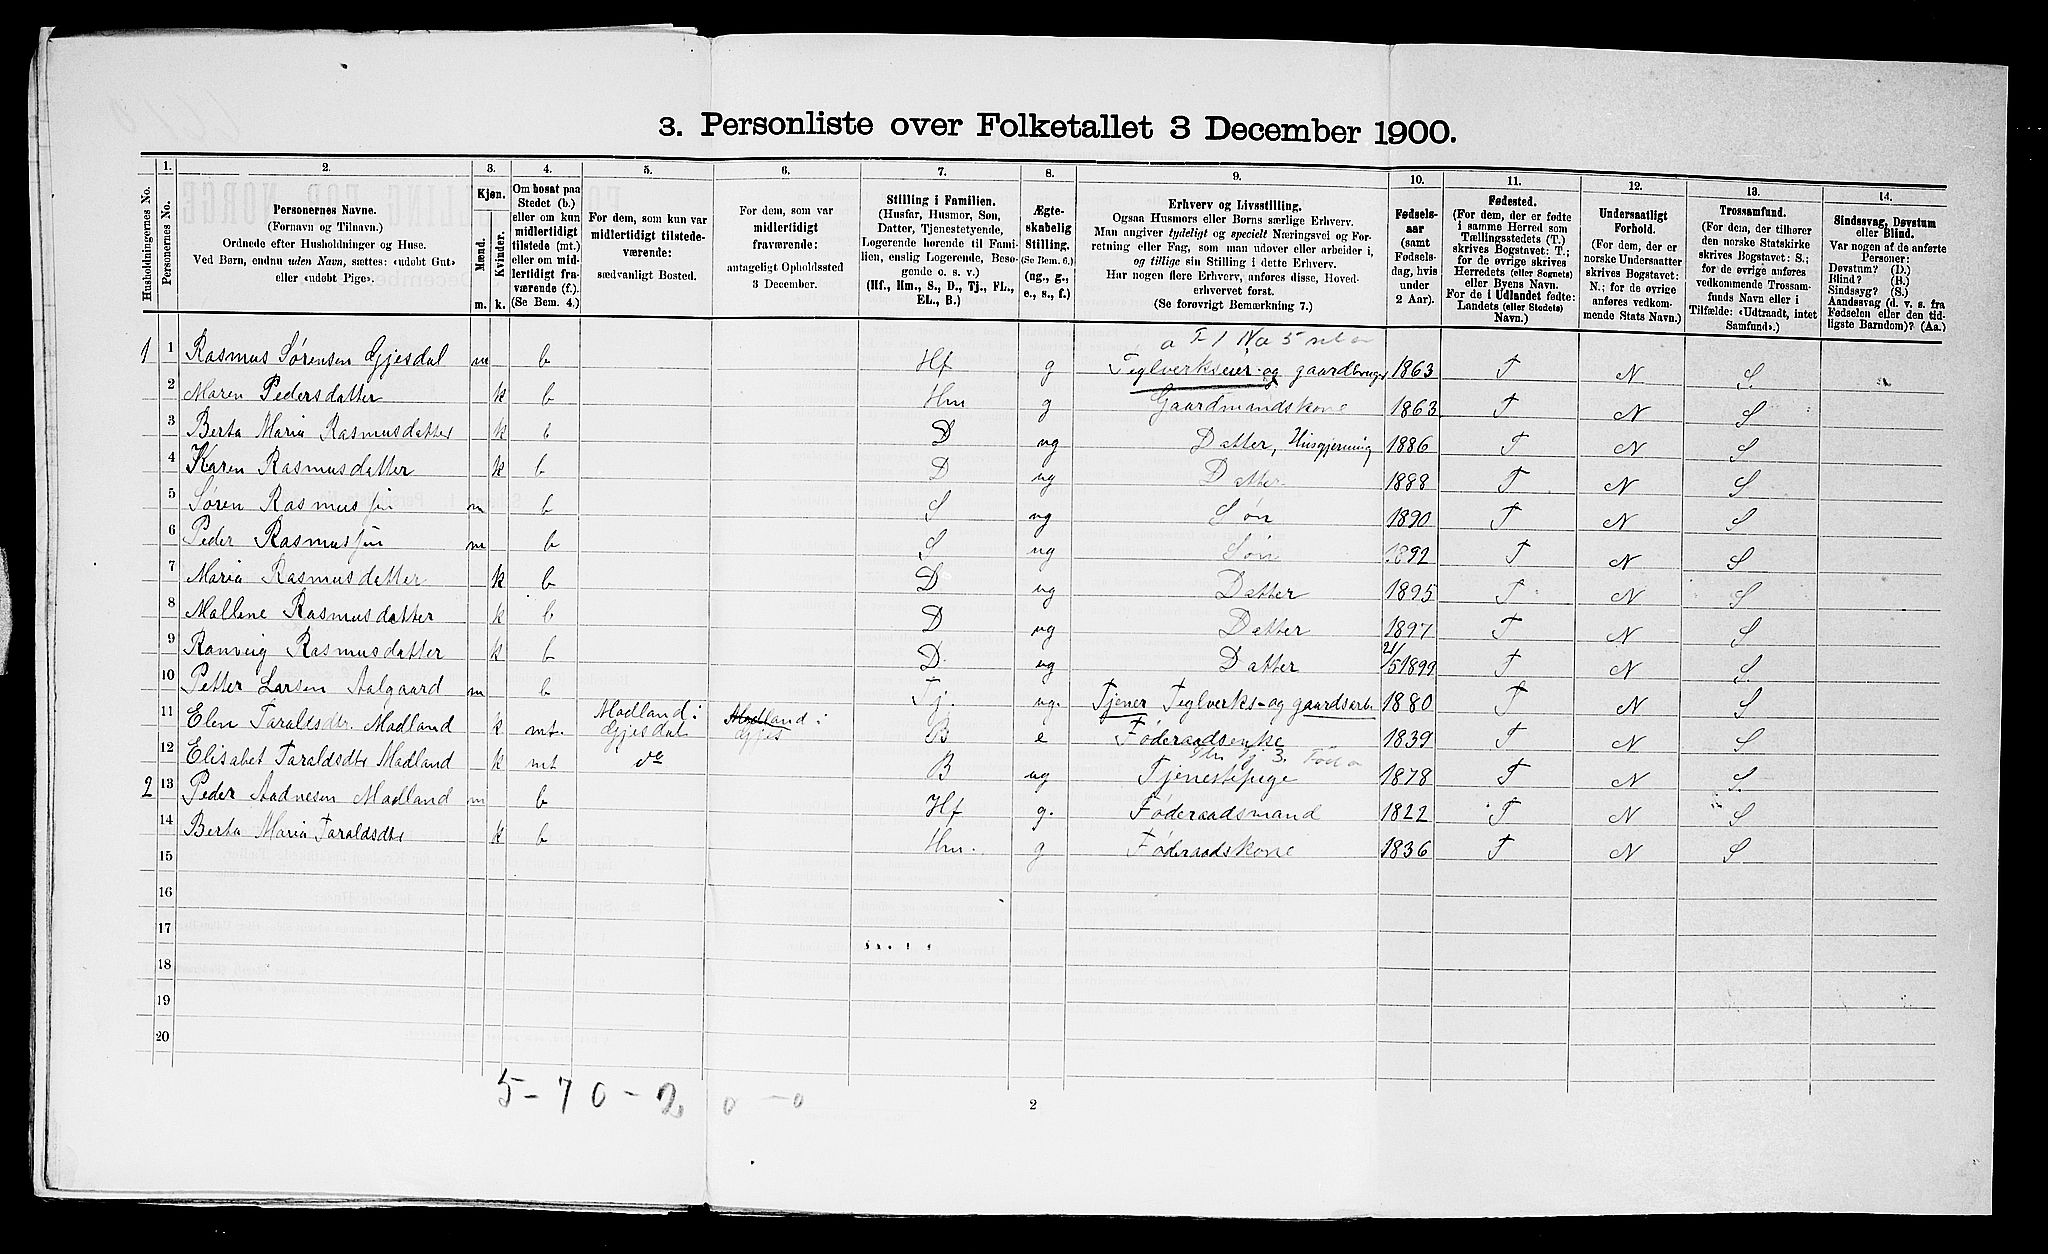 3. Personliste over Folketallet 3 December 1900.
Husholdningernes No.
1. Personernes No.
2. Personernes Navne. (Fornavn og Tilnavn.) Ordnede efter Husholdninger og Huse. Ved Børn, endnu uden Navn, sættes: «udøbt Gut» eller «udøbt Pige».
3. Kjøn. Mænd. m. Kvinder. k.
4. Om bosat paa Stedet (b.) eller om kun midlertidigt tilstede (mt.) eller om midlertidigt fraværende (f.). (Se Bem. 4.)
5. For dem, som kun var midlertidigt tilstedeværende: sædvanligt Bosted.
6. For dem, som var midlertidigt fraværende: antageligt Opholdssted 3 December.
7. Stilling i Familien. (Husfar, Husmor, Søn, Datter, Tjenestetyende, Logerende hørende til Familien, enslig Logerende, Besøgende o. s. v.) (Hf., Hm., S., D., Tj., FL., EL., B.)
8. Ægteskabelig Stilling. (Se Bem. 6.) (ug., g., e., s., f.)
9. Erhverv og Livsstilling. Ogsaa Husmors eller Børns særlige Erhverv. Man angiver tydeligt og specielt Næringsvei og Forretning eller Fag, som man udøver eller arbeider i, og tillige sin Stilling i dette Erhverv. Har nogen flere Erhverv, anføres disse, Hovederhvervet først. (Se forøvrigt Bemærkning 7.)
10. Fødselsaar (samt Fødselsdag, hvis under 2 Aar).
11. Fødested. (For dem, der er fødte i samme Herred som Tællingsstedets (T.) skrives Bogstavet: T.; for de øvrige skrives Herredets (eller Sognets) eller Byens Navn. For de i Udlandet fødte: Landets (eller Stedets) Navn.)
12. Undersaatligt Forhold. (For dem, der er norske Undersaatter skrives Bogstavet: N.; for de øvrige anføres vedkommende Stats Navn.)
13. Trossamfund. (For dem, der tilhører den norske Statskirke skrives Bogstavet: S.; for de øvrige anføres vedkommende Trossamfunds Navn eller i Tilfælde: «Udtraadt, intet Samfund».)
14. Sindssvag, Døvstum eller Blind. Var nogen af de anførte Personer: Døvstum? (D.) Blind? (B.) Sindssyg? (S.) Aandssvag (d. v. s. fra Fødselen eller den tidligste Barndom)? (Aa.)
1 1 Rasmus Sørensen Gjesdal m b Hf g Teglverkseier og gaardbruger 1863 T N S.
2 Maren Pedersdatter k b Hm g Gaardmandskone 1863 T N S
3 Berta Maria Rasmusdatter k b D ug Datter, Husgjerning 1886 T N S
4 Karen Rasmusdatter k b D ug Datter 1888 T N S
5 Søren Rasmussen m b S ug Søn 1890 T N S
6 Peder Rasmussen m b S ug Søn 1892 T N S
7 Maria Rasmusdatter k b D ug Datter 1895 T N S
8 Mallene Rasmusdatter k b D ug Datter 1897 T N S
9 Ranveig Rasmusdatter k b D. ug Datter 21/5 1899 T N S.
10 Petter Larsen Aalgaard m b Tj. ug. Tjener Teglverks- og gaardsarb. 1880 T N S
11 Elen Taraldsdtr. Madland k mt. Madland i Gjesdal Madland i Gjes B e Føderaadsenke 1839 T N S
12 Elisabet Taraldsdtr Madland k mt do B ug Tjenestepige 1878 T N S.
2 13 Peder Aadnesen Madland m b Hf g. Føderaadsmand 1822 T N S
14 Berta Maria Taraldsdtr k b Hm. g Føderaadskone 1836 T N S
15
16
17
18
19
20
5-70-2 0-0
2